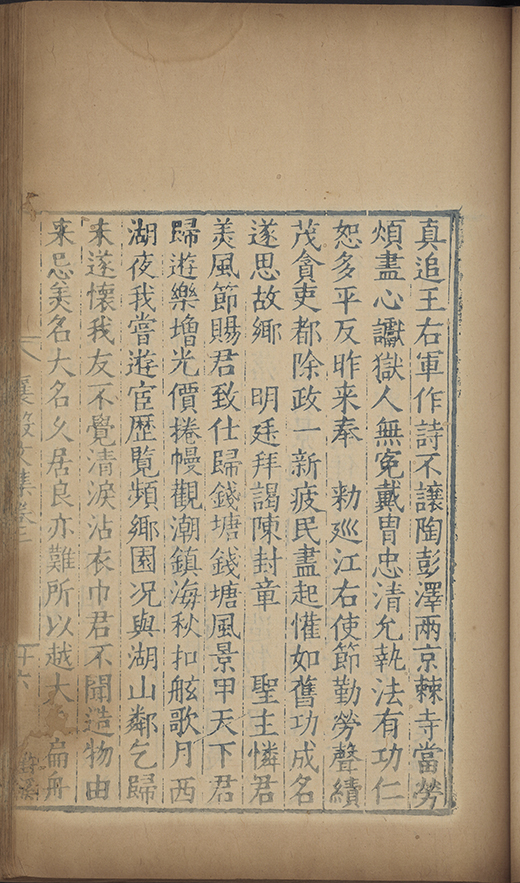 真追王右軍作詩不讓陶彭澤兩京棘寺當勞
煩盡心讞獄人無冤戴冑忠清允執法有功仁
恕多平反昨来奉　勑廵江右使節勤勞聲績
茂貪吏都除政一新疲民盡起懽如舊功成名
遂思故鄉　明廷拜謁陳封章　聖主憐君
羙風節賜君致仕歸錢塘錢塘風景甲天下君
歸遊樂增光價捲幔觀潮鎮海秋扣舷歌月西
湖夜我嘗遊宦歷覽頻鄉園况與湖山鄰乞歸
未遂懷我友不覺清淚沾衣巾君不聞造物由
来忌美名大名乆居良亦難所以越大扁舟
襄毅文集卷三
二十六